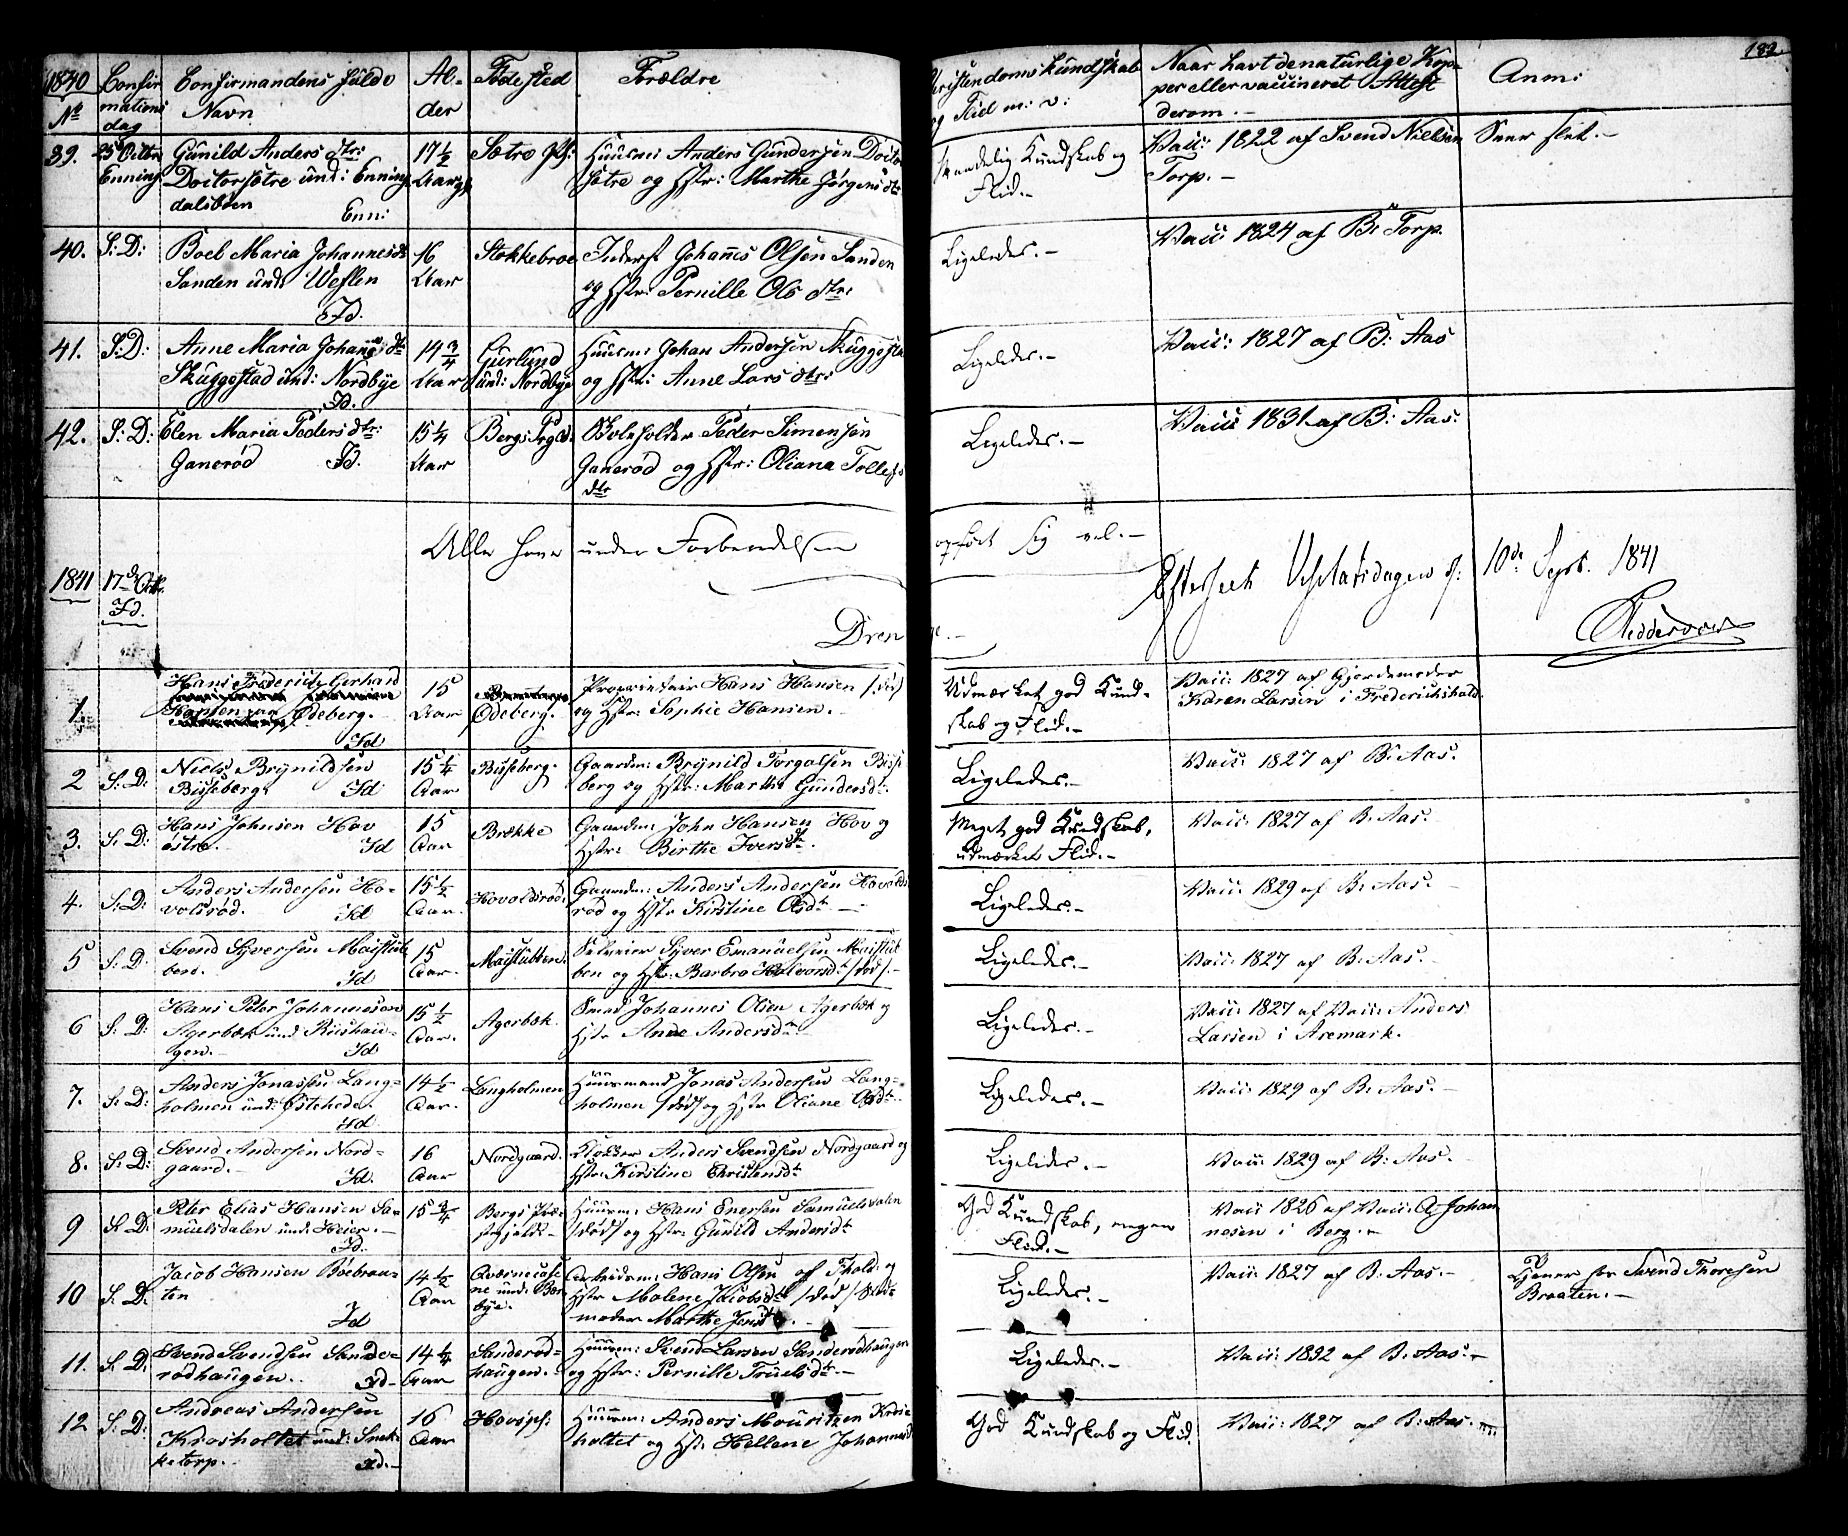 182.
1840
No
Confir
mations
dag
Confirmandens fulde
Navn
Al-
der
Fødested
Forældre
Christendomskundskab
og Flid m: v:
Naar havt de naturlige Kop-
per eller vaccineret Attest
derom. -
Anm:
39.
25 Octbr
Enning
Gunild Anders dtr:
Doctorsötre und: Enning
dalsböen
Enn:
17½
Aar
Sötre
Huusm: Anders Gundersen Doctor
sötre og Hstr: Marthe Jörgens dtr
Maadelig Kundskab og
Flid. -
Vacc: 1822 af Svend Nielsen
Torp. -
40.
S: D:
Boel Maria Johannesdtr
Sanden und: Weslen
Id.
16
Aar
Stokkebroe
Inderst Johannes Olsen Sanden
og Hstr: Pernille Ols dtr:
Ligeledes. -
Vacc: 1824 af B: Torp.
41.
S: D:
Anne Maria Johans dtr
Skuggestad und: Nordbye
Id.
14¾
Aar
und: Nordbye
Huusm: Johan Andersen Skuggesta
og Hstr: Anne Lars dtr:
Ligeledes. -
Vacc: 1827 af B: Aas
42.
S: D:
Elen Maria Peders dtr:
Ganerød Id.
15¼
Aar
Bergs Prgld.
Peder Simensen
Ganerød og Hstr: Oliana Tollefs
dtr
Ligeledes. -
Vacc 1831 af B: Aas:
Alle have under Forberedelsen opført sig vel. -
Efterseet Visitatsdagen d: 10de Septb. 1841
1841
17de Octbr.
Id.
Drenge. -
1.
Hans Frederich Gerhard
Hansen Ødeberg.
Id
15
Aar
Ødeberg.
Proprietair Hans Hansen /:død/
og Hstr: Sophie Hansen.
Udmærket god Kund-
skab og Flid. -
Vacc: 1827 af Gjordemoder
Karen Larsen i Frederikshald.
2
S: D:
Niels Brynildsen
Busseberg. Id
15¼
Aar
Busseberg.
Gaardm: Brynild Torgalsen Busse
berg og Hstr: Marthe Gundersdtr.
Ligeledes. -
Vacc: 1827 af B: Aas.
3.
S: D:
Hans Johnsen Hov
østre. Id
15
Aar
Brække
Gaardm: John Hansen Hov og
Hstr: Birthe Iversdtr.
Meget god Kundskab,
udmærket Flid. -
Vacc: 1827 af B: Aas.
4.
S: D:
Anders Andersen Ho-
volsrød. Id
15½
Aar.
Hovoldsrød:
Gaardm: Anders Andersen Hovolds
rød og Hstr Kirstine Olsdtr. -
Ligeledes. -
Vacc: 1829 af B: Aas. -
5
S: D:
Svend Syversen Maistub
ben. Id
15
Aar.
Maistubben:
Selveier Syver Emanuelsen Maistub
ben og Hstr: Barbro Halvorsdtr /død/. -
Ligeledes. -
Vacc: 1827 af B: Aas.
6
S: D:
Hans Peter Johannesen
Agerbæk und: Riishau-
gen. - Id
15½
Aar.
Agerbæk.
Smed Johannes Olsen Agerbæk og
Hstr Anne Andersdtr
Ligeledes. -
Vacc: 1827 af Vacc: Anders
Larsen i Aremark.
7.
S: D:
Anders Jonassen Lang-
holmen und: Østehede.
Id
14½
Aar.
Langholmen
Huusmand Jonas Andersen Lang-
holmen /død/ og Hstr Oliane Olsdtr.
Ligeledes. -
Vacc: 1829 af B: Aas. -
8.
S: D:
Svend Andersen Nord-
gaard. - Id.
16
Aar
Nordgaard.
Klokker Anders Svendsen Nordgaard og
Hstr: Kirstine Christensdtr
Ligeledes. -
Vacc: 1829 af B: Aas.
9
S: D:
Peter Elias Hansen Sa-
muelsdalen und: Heier. -
Id.
15¾
Bergs Præ-
stegjeld. -
Huusm: Hans Enersen Samuelsdalen
/død/ og Hstr: Gunild Andersdtr
God Kundskab, megen
Flid. -
Vacc 1826 af Vacc: A Johan
nesen i Berg. -
10
S: D:
Jacob Hansen Böebrau-
ten
Id
14½
Aar
Hans Olsen og
Hstr Malene Jacobsdtr /død/
moder Marthe Jensdtr. -
Ligeledes. -
Vacc: 1827 af B: Aas. -
Tjener for Svend Thoresen
Braaten. -
11.
S: D:
Svend Svendsen Sande-
rødhaugen. Id -
14¼
Aar
Sanderød-
haugen. -
Huusm: Svend Larsen Sanderødhaugen
og Hstr: Pernille Truelsdtr. -
Ligeledes. -
Vacc: 1832 af B: Aas. -
12
S: D:
Andreas Andersen
Krosholtet und: Snek-
ketorp. - Id. -
16
Aar
Huusm: Anders Mouritzen
holtet og Hstr: Hellene Johannesd
God Kundskab og Flid.
Vacc: 1827 af B: Aas.